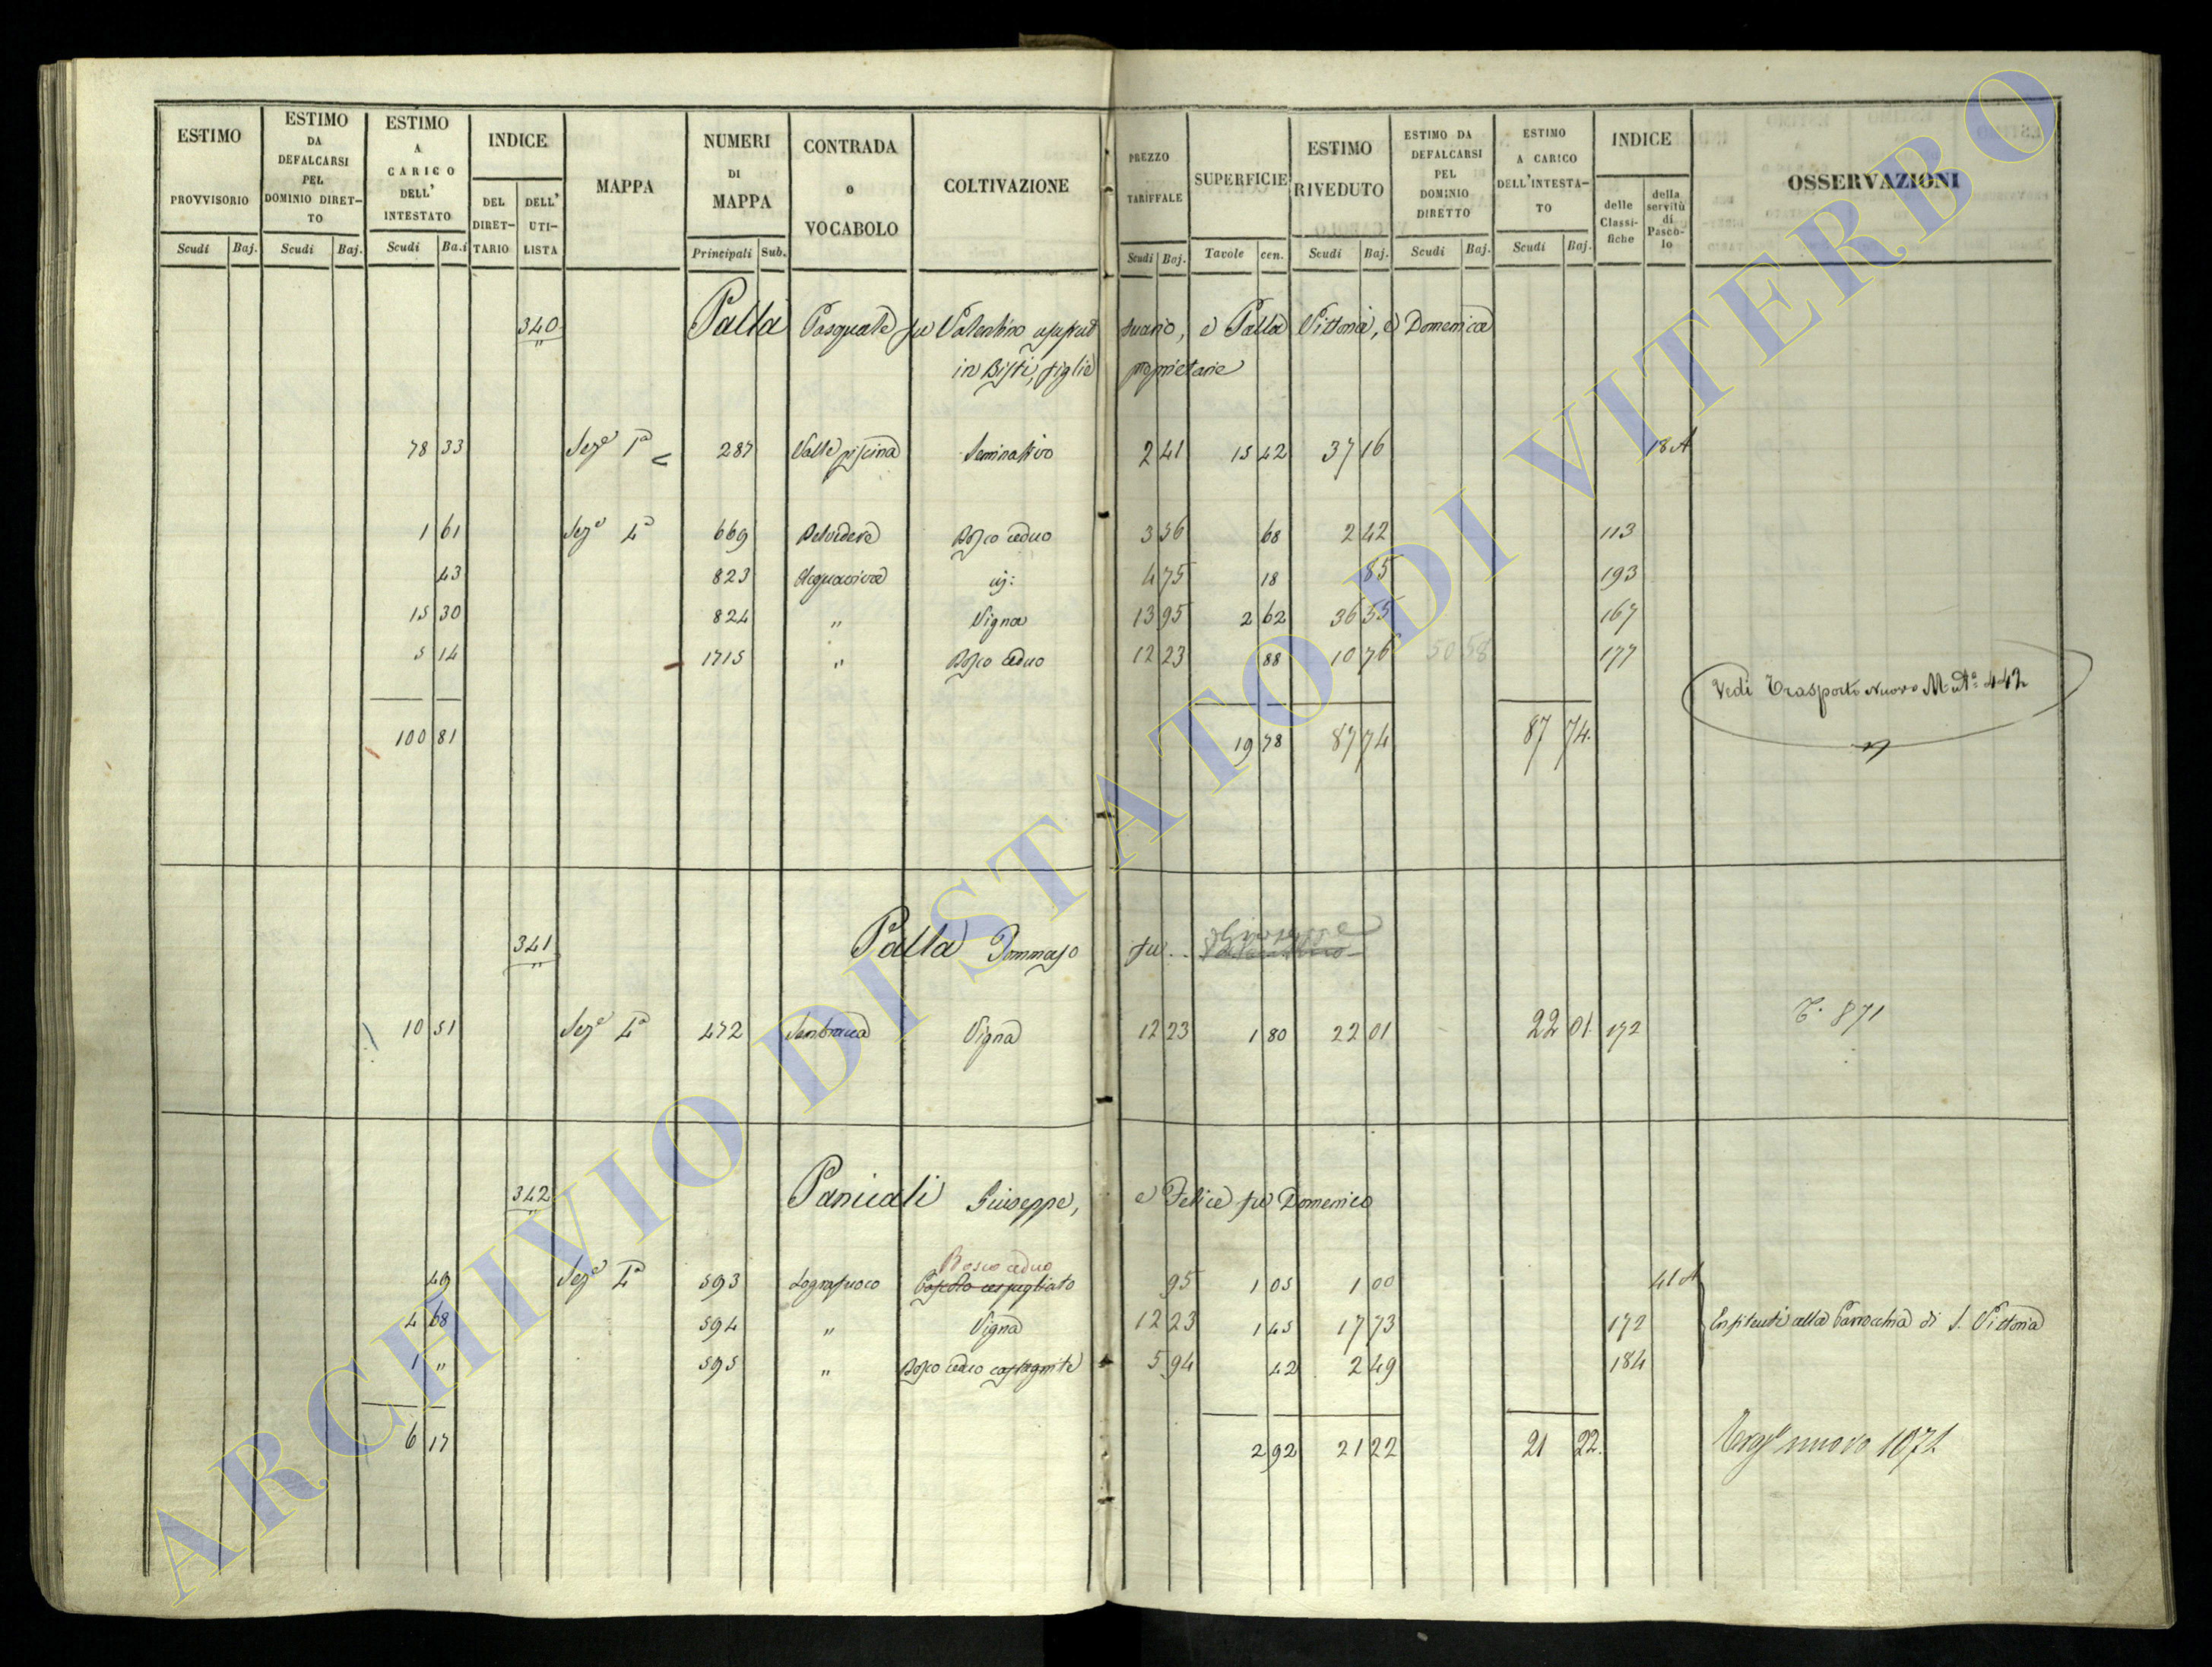 ESTIMO PROVVISORIO Scudi Baj.
ESTIMO DA DEFALCARSI PEL DOMINIO DIRET-TO Scudi Baj.
ESTIMO A CARICO DELL' INTESTATO Scudi Ba.i
INDICE DEL DIRET-TARIO DELL' UTI-LISTA
MAPPA
NUMERI DI MAPPA Principali Sub.
CONTRADA o VOCABOLO
COLTIVAZIONE
PREZZO TARIFFALE Scudi Baj.
SUPERFICIE Tavole cen.
ESTIMO RIVEDUTO Scudi Baj.
ESTIMO DA DEFALCARSI PEL DOMINIO DIRETTO Scudi Baj.
ESTIMO A CARICO DELL'INTESTA-TO Scudi Baj.
INDICE delle Classi-fiche della servitù di Pasco-lo
OSSERVAZIONI
340 Palla Pasquale fu Valentino usufrut tuario, e Palla Vittoria, e Domenica
in Bisti, figlie proprietarie
78 33 Seze 1a 287 Valle piscina Seminativo 2 41 15 42 37 16 18 A
1 61 Seze 4a 669 Belvedere Bosco ceduo 3 56 68 2 42 113
43 823 Acquaviva id: 4 75 18 85 193
15 30 824 " Vigna 13 95 2 62 36 55 167
5 14 1715 " Bosco ceduo 12 23 88 10 76 50 58 177
Vedi Trasporto Nuovo M 442
100 81 19 78 87 74 87 74.
341 Palla Tommaso fu .. Giuseppe
10 51 Seze 4a 472 Vigna 12 23 1 80 22 01 22 01. 172 T. 871
342 Panicali Giuseppe, e Felice fu Domenico
Bosco ceduo
49 Seze 4a 593 Lografuoco Pascolo cespugliato 95 1 05 1 00 41 A
4 68 594 " Vigna 12 23 1 45 17 73 172 Enfiteuti alla Parrocchia di S. Vittoria
1 " 595 " Bosco ceduo castagnile 5 94 42 2 49 184
6 17 2 92 21 22 21 22. nuovo 1071
ARCHIVIO DI STATO DI VITERBO